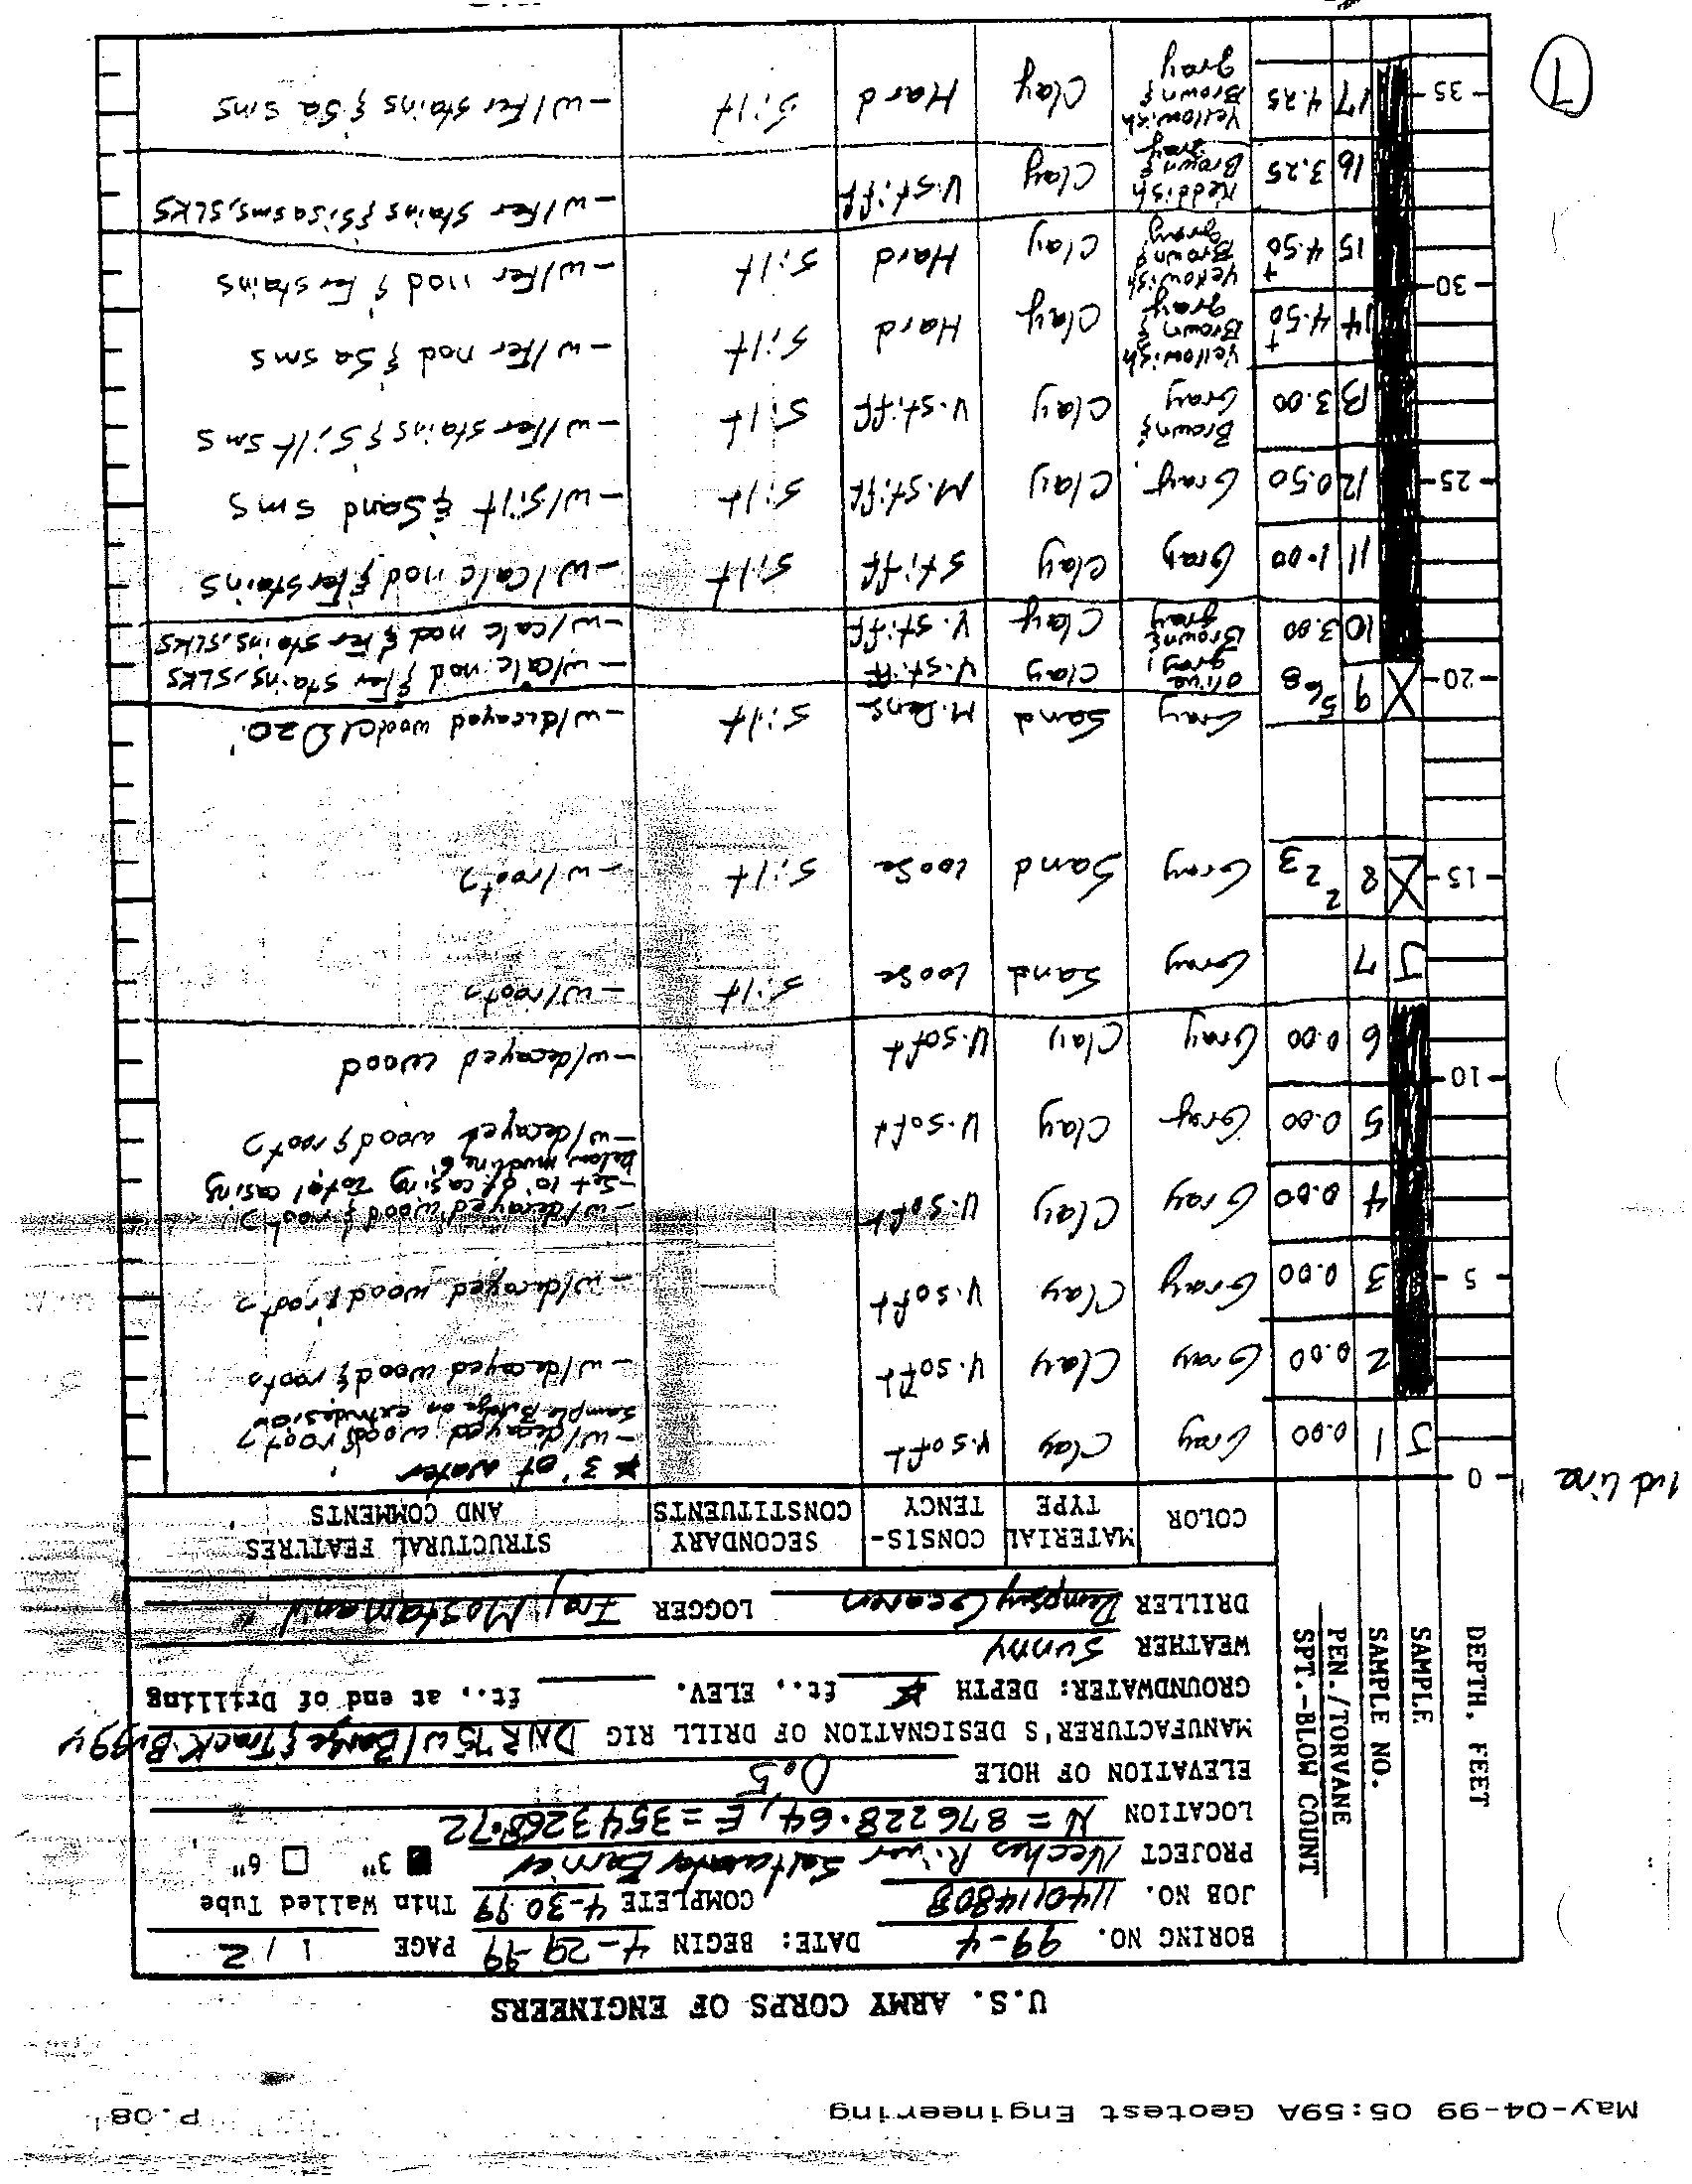 May-04-99 05:59A Geotest Engineering P.08
U.S. ARMY CORPS OF ENGINEERS
BORING NO. 99-4 DATE: BEGIN 4-29-99 PAGE 1/2
JOB NO. 1140114808 COMPLETE 4-30-99 Thin Walled Tube
PROJECT Neches River Saltwater Barrier 3" 6"
LOCATION N = 876228.64, E = 3543268.72
ELEVATION OF HOLE 0.5
MANUFACTURER'S DESIGNATION OF DRILL RIG 75 w/Barge & Track Buggy
GROUNDWATER: DEPTH * ft., ELEV. ft., at end of Drilling
WEATHER Sunny
DRILLER Dempsey LOGGER
DEPTH, FEET
SAMPLE
SAMPLE NO.
PEN./TORVANE
SPT.-BLOW COUNT
COLOR
MATERIAL TYPE
CONSIS-TENCY
SECONDARY CONSTITUENTS
STRUCTURAL FEATURES AND COMMENTS
0 * 3' of water
J 1 0.00 Gray Clay V.soft -w/decayed wood & roots
Sample on extrusion
2 0.00 Gray Clay V.soft -w/decayed wood & roots
5 3 0.00 Gray Clay V.soft -w/decayed wood & roots
4 0.00 Gray Clay V.soft -w/decayed wood & roots
-Set 10' of casing Total casing
below mudline 6'
5 0.00 Gray Clay V.soft -w/decayed wood & roots
10 6 0.00 Gray Clay V.soft -w/decayed wood
J 7 Gray Sand loose Silt -w/roots
15 8 2 2 3 Gray Sand loose Silt -w/roots
Gray Sand M.Dens Silt -w/decayed wood @ 20.'
20 9 5 6 8 olive gray Clay V.stiff -w/calc nod & fer stains, SLKS
10 3.00 Brown & gray Clay V.stiff -w/calc nod & Fer stains, SLKS
11 1.00 Gray Clay Stiff Silt -w/Calc nod & fer stains
25 12 0.50 Gray Clay M.Stiff Silt -w/Silt & Sand sms
13 3.00 Brown & Gray Clay V.stiff Silt -w/Fer stains & Silt sms
14 4.50+ Yellowish Brown & gray Clay Hard Silt -w/Fer nod & Sa sms
30 15 4.50+ Yellowish Brown & gray Clay Hard Silt -w/Fer nod & Fer stains
16 3.25 Reddish Brown & gray Clay V.stiff -w/Fer stains & Si, sa sms, SLKS
35 17 4.25 Yellowish Brown & gray Clay Hard Silt -w/Fer stains & Sa sms
1